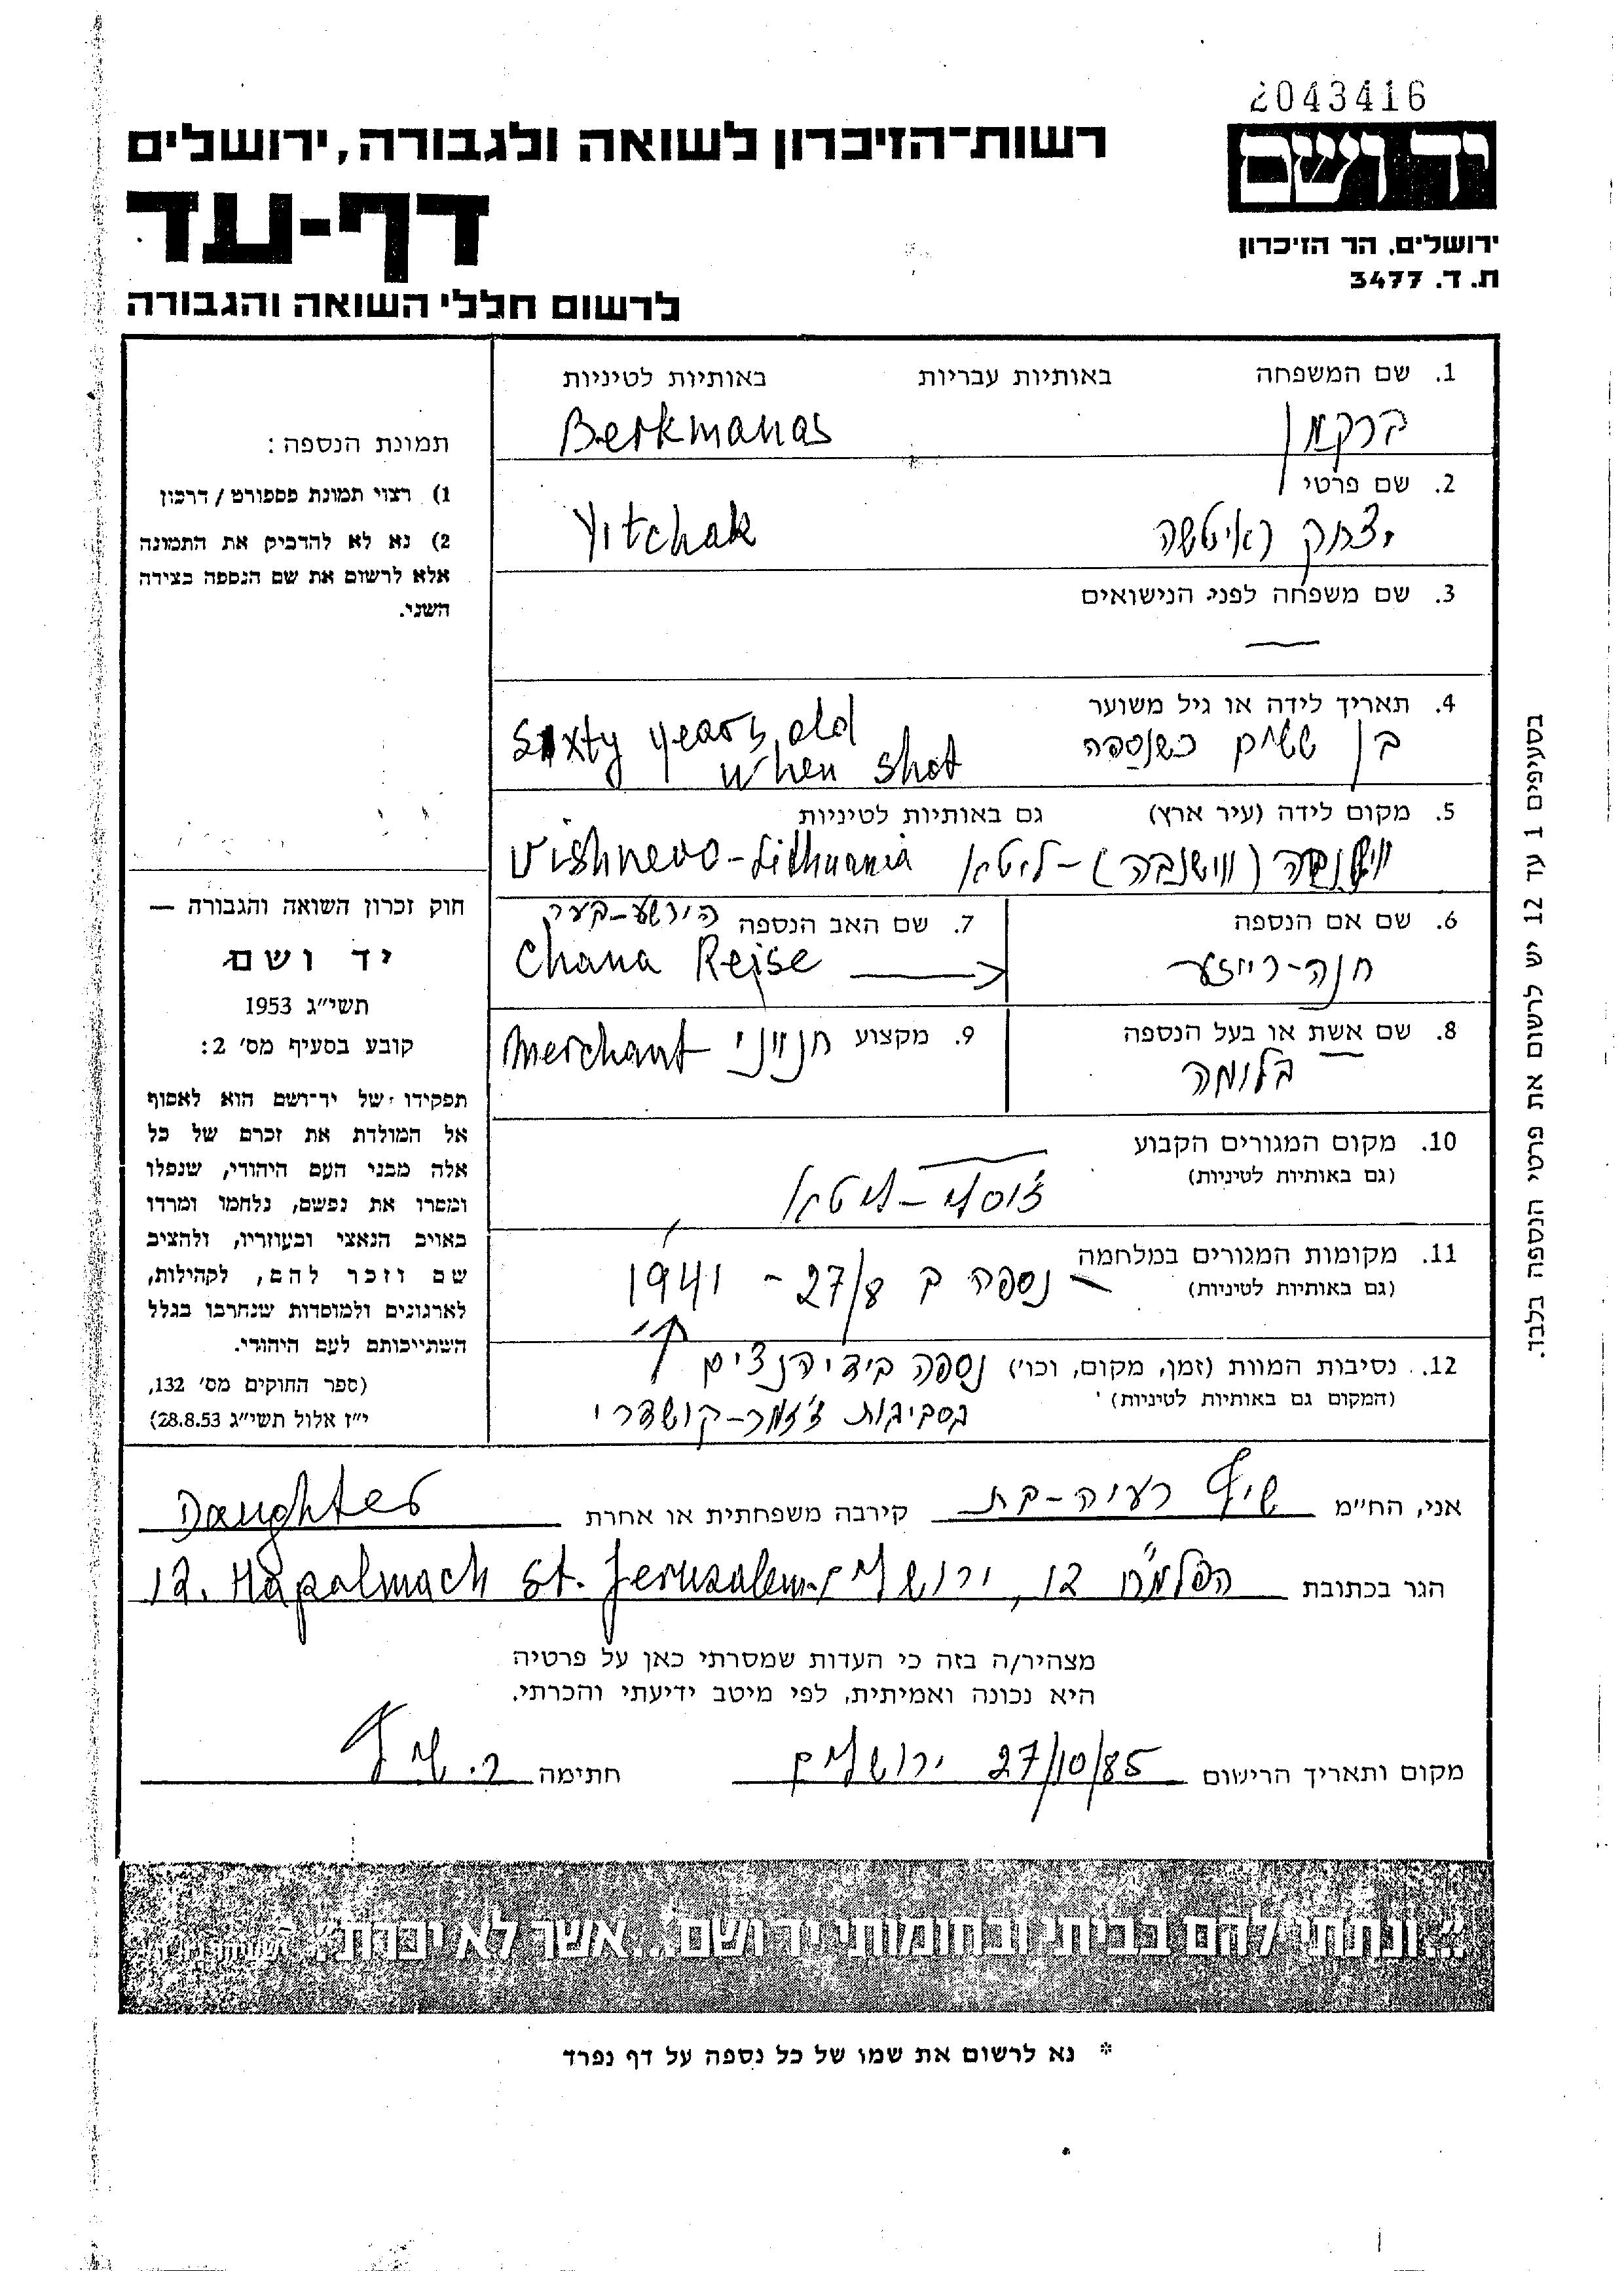 2043416
יד ושם
רשות־הזיכרון לשואה ולגבורה, ירושלים
דף-עד
לרשום חללי השואה והגבורה
ירושלים, הר הזיכרון
ת. ד. 3477
1. שם המשפחה באותיות עבריות באותיות לטיניות
ברקמן Berkmanas
2. שם פרטי
יצחק (איטשה Yitchak
3. שם משפחה לפני הנישואים
—
4. תאריך לידה או גיל משוער
בן ששים כשנספה Sixty years old
when shot
5. מקום לידה (עיר ארץ) גם באותיות לטיניות
(ווישנבה) – ליטא Vishnevo - Lithuania
6. שם אם הנספה
חנה-רייזע
7. שם האב הנספה הירשע-בער
Chana Rejse
8. שם אשת או בעל הנספה
בלומה
9. מקצוע חנווני Merchant
10. מקום המגורים הקבוע
(גם באותיות לטיניות)
ז'וסלי – ליטא
11. מקומות המגורים במלחמה
(גם באותיות לטיניות)
נספה ב 27/8 - 1941
12. נסיבות המוות (זמן, מקום, וכו') נספה בידי הנצים
(המקום גם באותיות לטיניות)
בסביבות ז'זמר-קושדרי
תמונת הנספה:
1) רצוי תמונת פספורט / דרכון
2) נא לא להדביק את התמונה
אלא לרשום את שם הנספה בצידה
השני.
חוק זכרון השואה והגבורה —
יד ושם
תשי״ג 1953
קובע בסעיף מס׳ 2:
תפקידו של יד־ושם הוא לאסוף
אל המולדת את זכרם של כל
אלה מבני העם היהודי, שנפלו
ומסרו את נפשם, נלחמו ומרדו
באויב הנאצי ובעוזריו, ולהציב
שם וזכר להם, לקהילות,
לארגונים ולמוסדות שנחרבו בגלל
השתייכותם לעם היהודי.
(ספר החוקים מס׳ 132,
י״ז אלול תשי״ג 28.8.53)
בסעיפים 1 עד 12 יש לרשום את פרטי הנספה בלבד.
אני, הח״מ שיף רעיה-בת קירבה משפחתית או אחרת Daughter
הגר בכתובת הפלמ"ח 12, ירושלים 12. Hapalmach St. Jerusalem
מצהיר/ה בזה כי העדות שמסרתי כאן על פרטיה
היא נכונה ואמיתית, לפי מיטב ידיעתי והכרתי.
מקום ותאריך הרישום 27/10/85 ירושלים חתימה ר. שיף
״...ונתתי להם בביתי ובחומותי יד ושם...אשר לא יכרת״.
* נא לרשום את שמו של כל נספה על דף נפרד